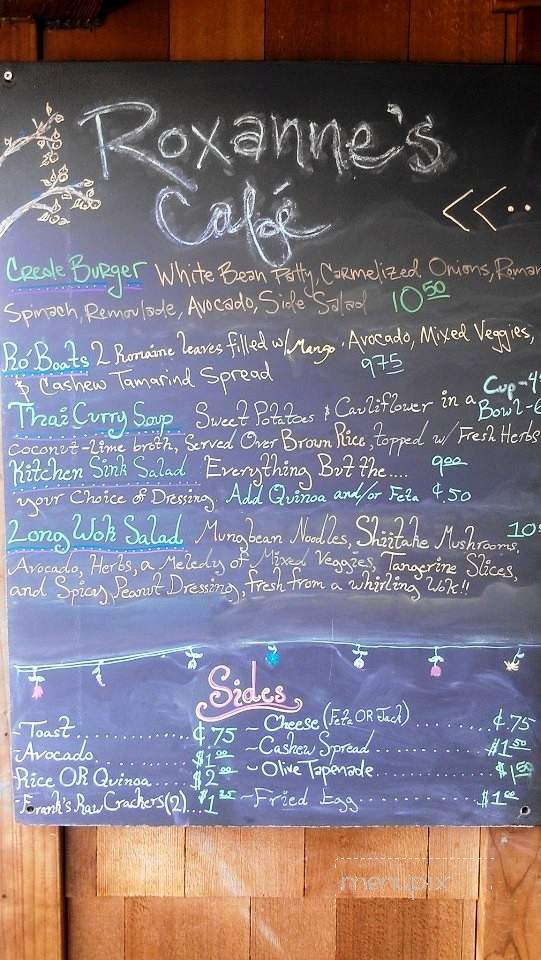 Roxanne's
Café
<<..
Creole Burger White Bean Patty, Carmelized Onions, Roman
Spinach, Remoulade, Avocado, Side Salad 10 50
Ro' Boats 2 Romaine leaves filled w/ Mango, Avocado, Mixed Veggies,
& Cashew Tamarind Spread 9 75
Cup-4
Thai Curry Soup Sweet Potatoes & Cauliflower in a Bowl-6
coconut-lime broth, Served Over Brown Rice, topped w/ Fresh Herbs
Kitchen Sink Salad Everything But the.... 9 00
your Choice of Dressing. Add Quinoa and/or Feta ¢.50
Long Wok Salad Mungbean Noodles, Shiitake Mushrooms, 10
Avocado, Herbs, a Meledy of Mixed Veggies, Tangerine Slices,
and Spicy Peanut Dressing, fresh from a whirling Wok!!
Sides
-Toast............ ¢.75
-Avocado........... $1 00
-Rice OR Quinoa.... $2 00
-Frank's Raw Crackers(2)... $1 25
~Cheese (Feta OR Jack)......... ¢.75
~Cashew Spread............. $1 50
~Olive Tapenade............ $1 50
~Fried Egg............ $1 00
menupix